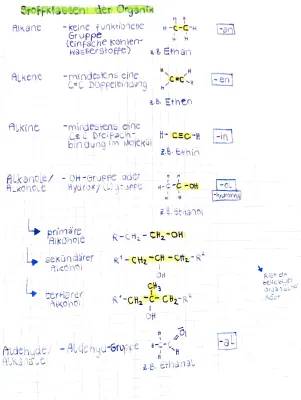 Stoffklassen der Organik
Alkane - keine funktionelle Gruppe (einfache Kohlenwasserstoffe) -an
z.B. Ethan
Alkene - mindestens eine C=C Doppelbindung -en
z.B. Ethen
Alkine - mindestens eine C≡C Dreifachbindung im Molekül H-C≡C-H -in
z.B. Ethin
Alkanole/Alkohole - OH-Gruppe oder Hydroxylgruppe -ol
z.B. Ethanol
primäre Alkohole R-CH₂-CH₂-OH
sekundärer Alkohol R¹-CH₂-CH-CH₂-R²
OH
tertiärer Alkohol
CH₃
R¹-CH₂-C-CH₂-R²
OH
Aldehyde/Alkanale - Aldehyd-Gruppe -al
z.B. Ethanal